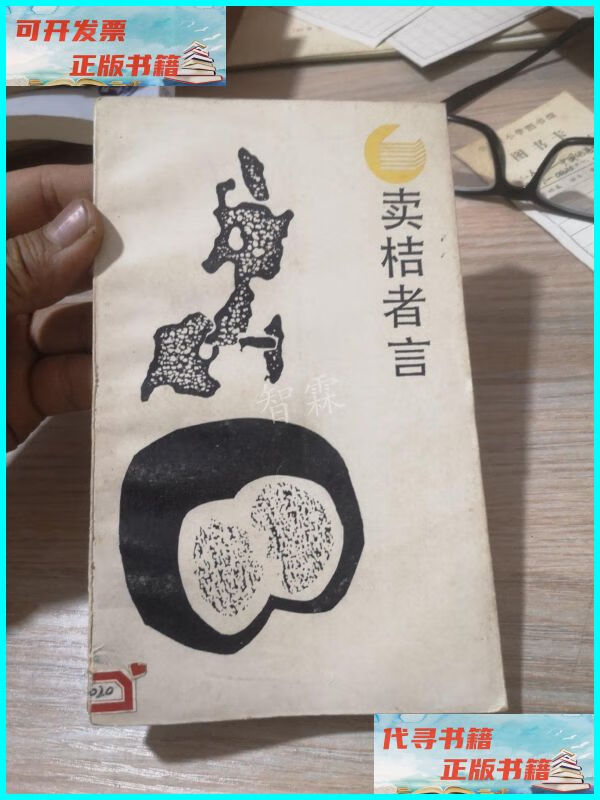 可开发票
正版书籍
图书卡
卖桔者言
智霖
020
代寻书籍
正版书籍